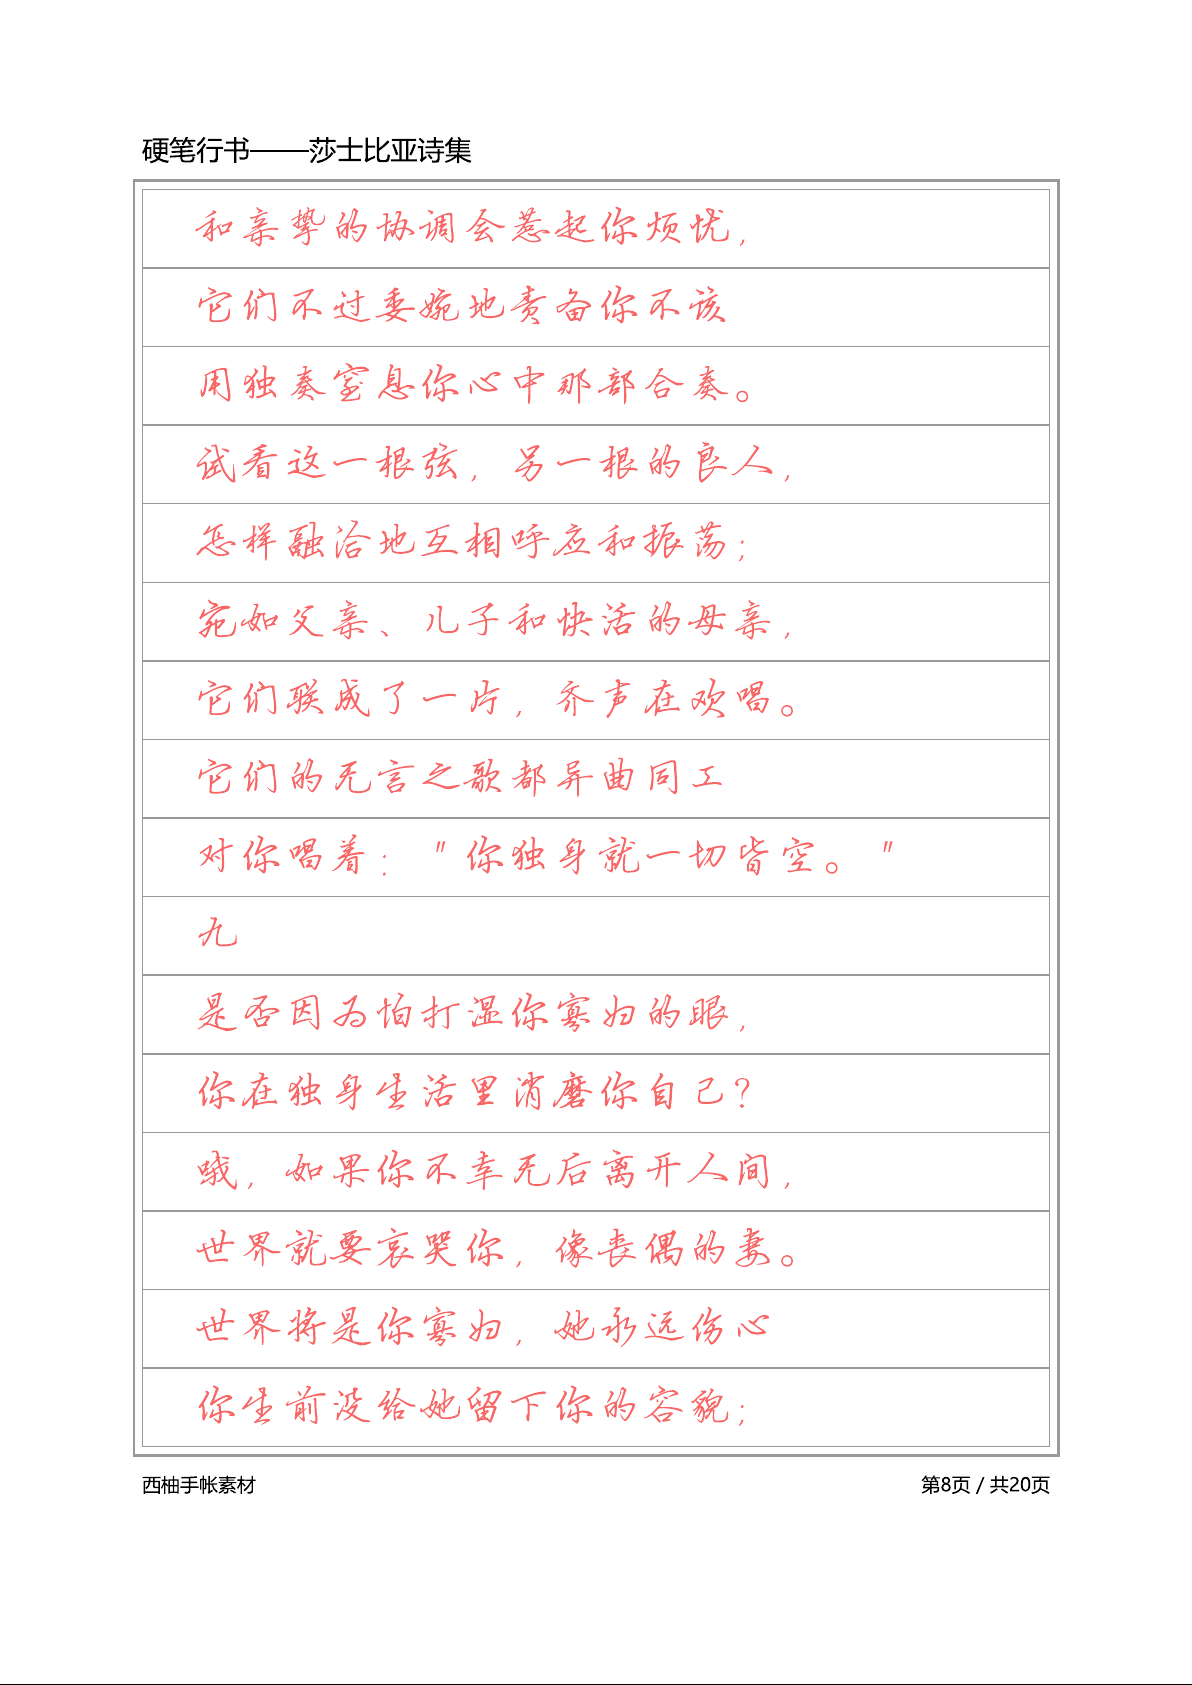 硬笔行书——莎士比亚诗集
和亲挚的协调会惹起你烦忧，
它们不过委婉地责备你不该
用独奏窒息你心中那部合奏。
试看这一根弦，另一根的良人，
怎样融洽地互相呼应和振荡；
宛如父亲、儿子和快活的母亲，
它们联成了一片，齐声在欢唱。
它们的无言之歌都异曲同工
对你唱着："你独身就一切皆空。"
九
是否因为怕打湿你寡妇的眼，
你在独身生活里消磨你自己？
哦，如果你不幸无后离开人间，
世界就要哀哭你，像丧偶的妻。
世界将是你寡妇，她永远伤心
你生前没给她留下你的容貌；
西柚手帐素材 第8页 / 共20页